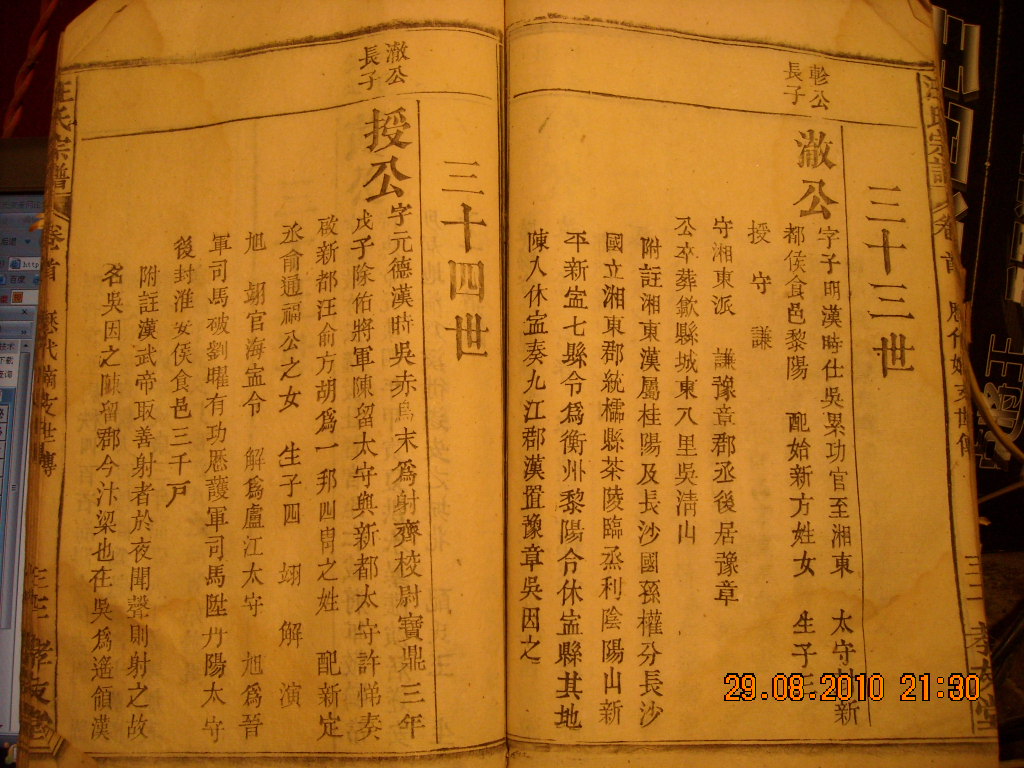 三十三世
軫公
長子
澈公
字子明漢時仕吳累功官至湘東 太守 新
都侯食邑黎陽 配始新方姓女 生子三
授 守 謙
守湘東派 謙豫章郡丞後居豫章
公卒葬歙縣城東八里吳清山
附註湘東漢屬桂陽及長沙國孫權分長沙
國立湘東郡統檽縣茶陵臨烝利陰陽山新
平新寍七縣令爲衡州黎陽今休寍縣其地
陳入休寍奏九江郡漢置豫章吳因之
三十四世
澈公
長子
授公
字元德漢時吳赤烏末爲射齊校尉寶鼎三年
戊子除佑將軍陳留太守與新都太守許悌奏
啟新都汪俞方胡爲一邦四冑之姓 配新定
丞俞通福公之女 生子四 翊 解 演
旭 翊官海寍令 解爲盧江太守 旭爲晉
軍司馬破劉曜有功歷護軍司馬陞丹陽太守
後封淮安侯食邑三千戸
附註漢武帝取善射者於夜聞聲則射之故
名吳因之陳留郡今汴梁也在吳爲遙領漢
汪氏宗譜 卷首 歷代 世傳
29.08.2010 21:30